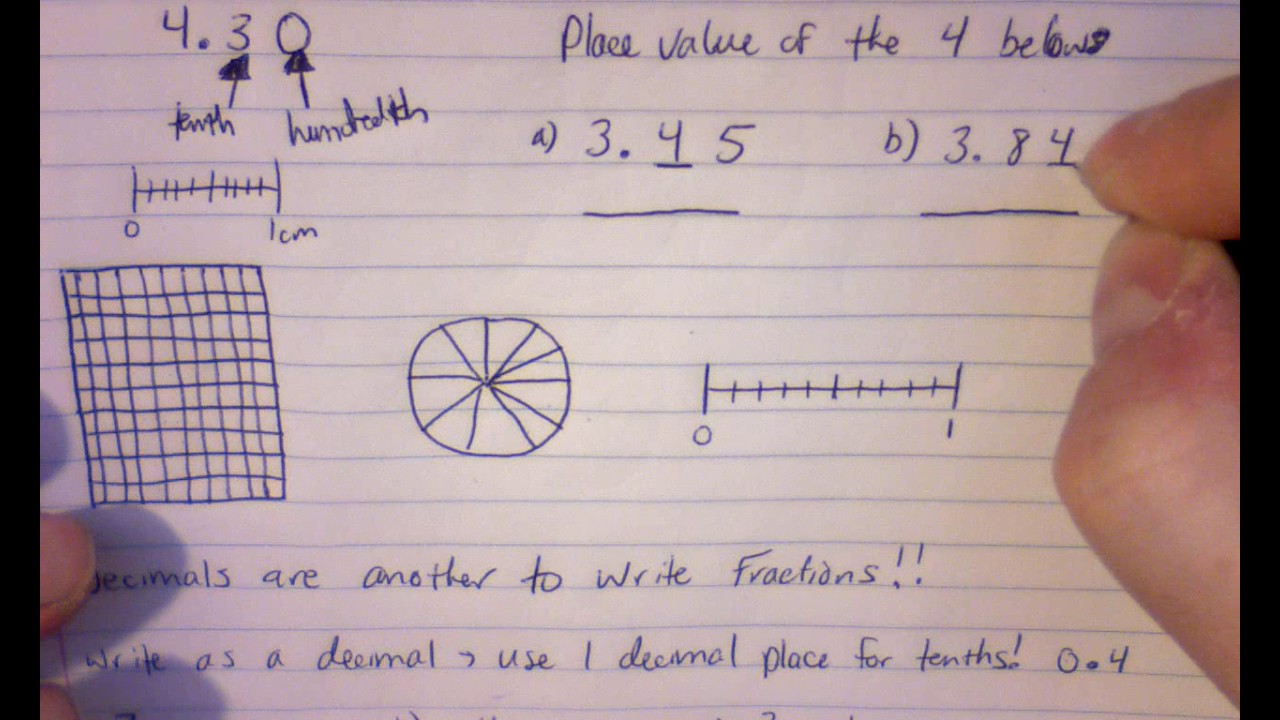 4.30
tenth hundredth
0 1cm
Place value of the 4 below
a) 3.45 b) 3.84
0 1
decimals are another to write Fractions!!
write as a decimal → use 1 decimal place for tenths! 0.4